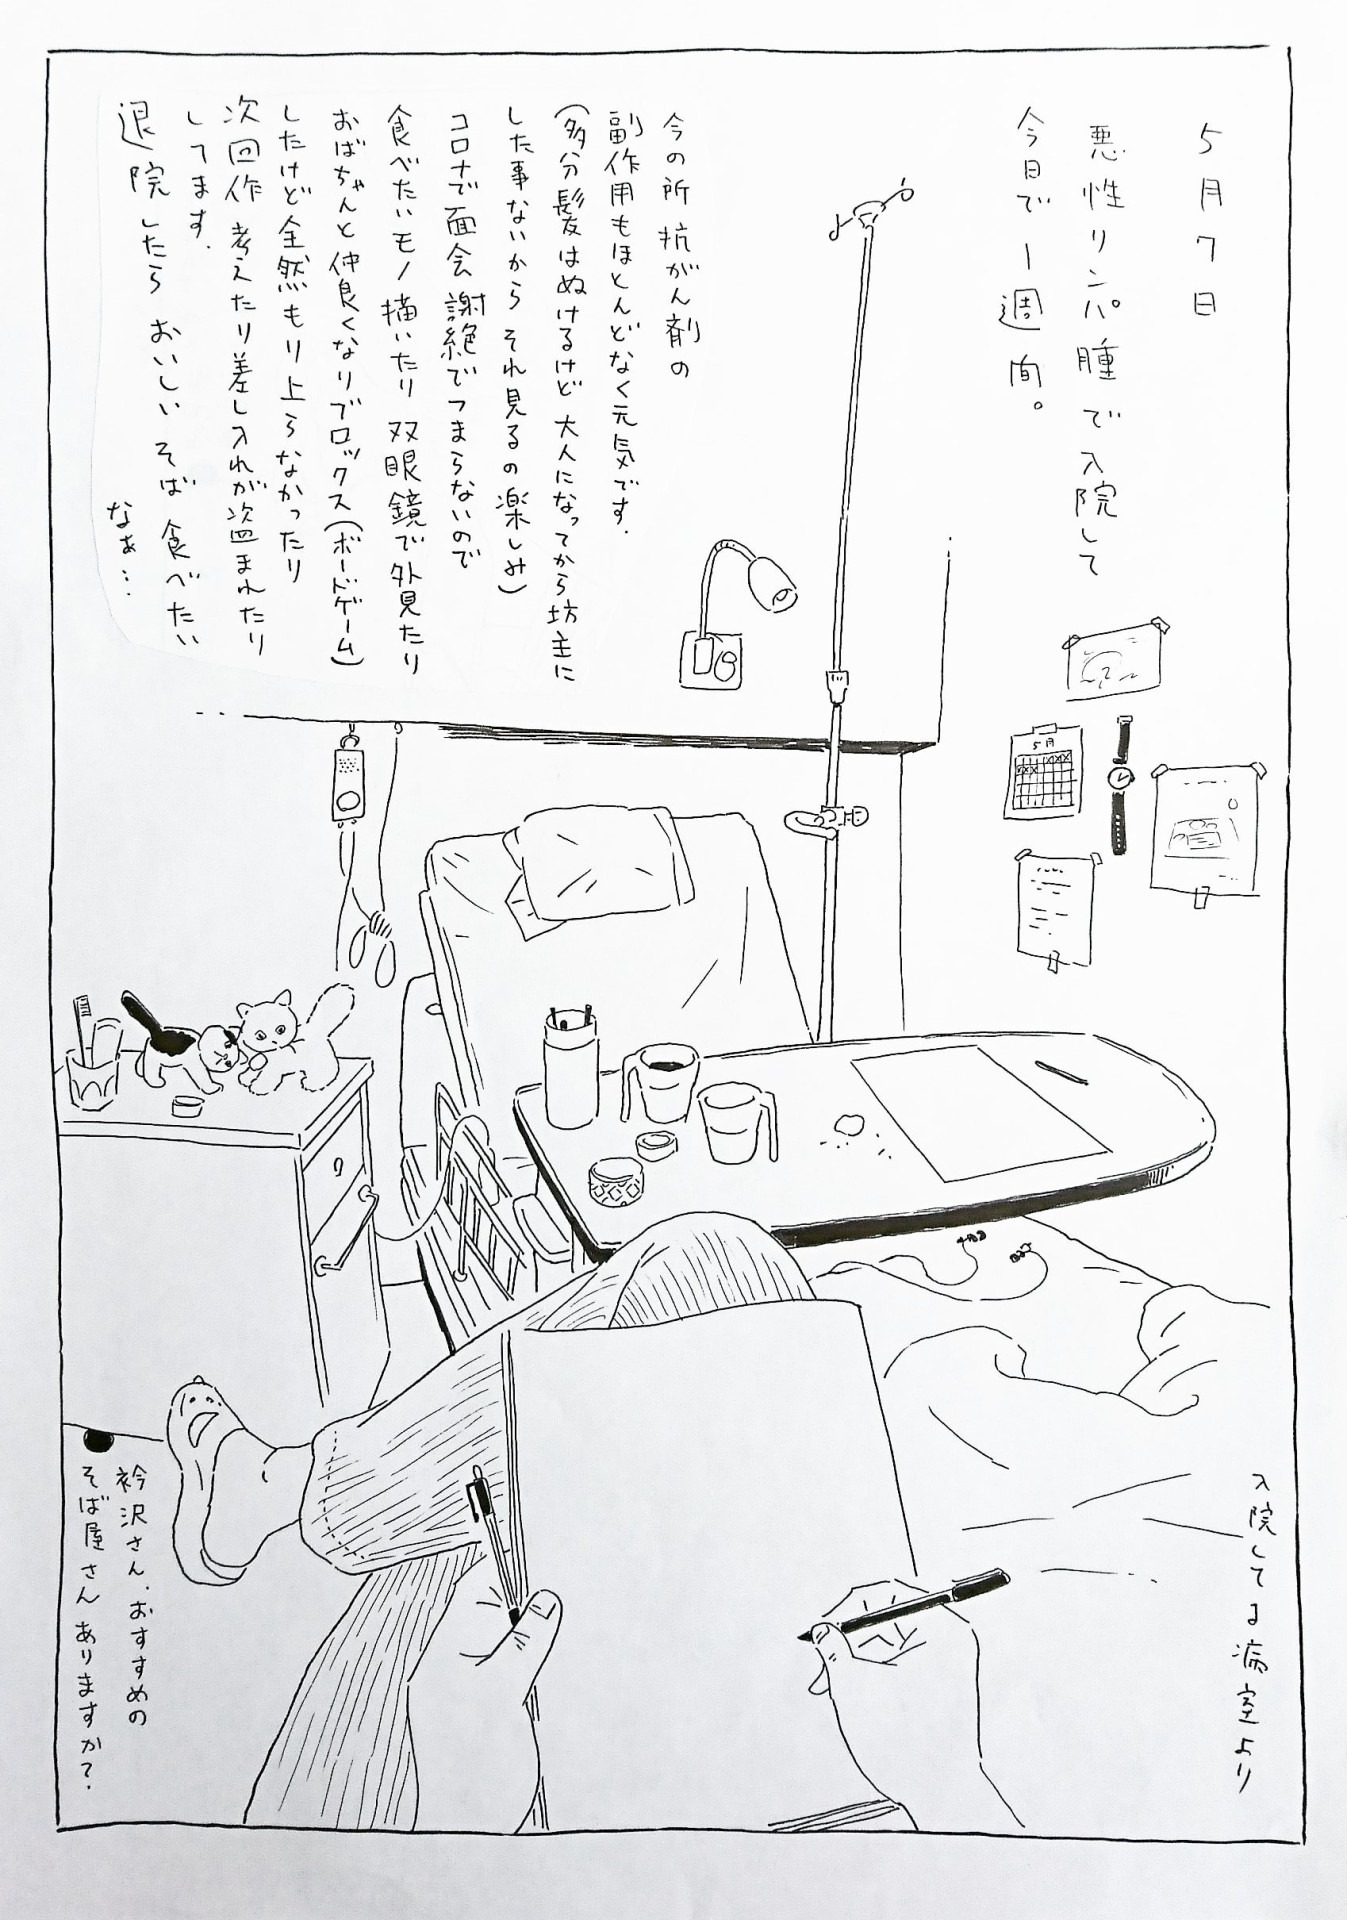 5月7日
悪性リンパ腫で入院して
今日で一週間。
今の所 抗がん剤の
副作用もほとんどなく元気です.
(多分髪はぬけるけど 大人になってから坊主に
した事ないから それ見るの楽しみ)
コロナで面会 謝絶でつまらないので
食べたいモノ 描いたり 双眼鏡で外見たり
おばちゃんと仲良くなりブロックス(ボードゲーム)
したけど全然もり上らなかったり
次回作 考えたり差し入れが盗まれたり
してます.
退院したら おいしい そば 食べたい
なぁ…
5月
入院してる病室より
衿沢さん、おすすめの
そば屋さん ありますか?